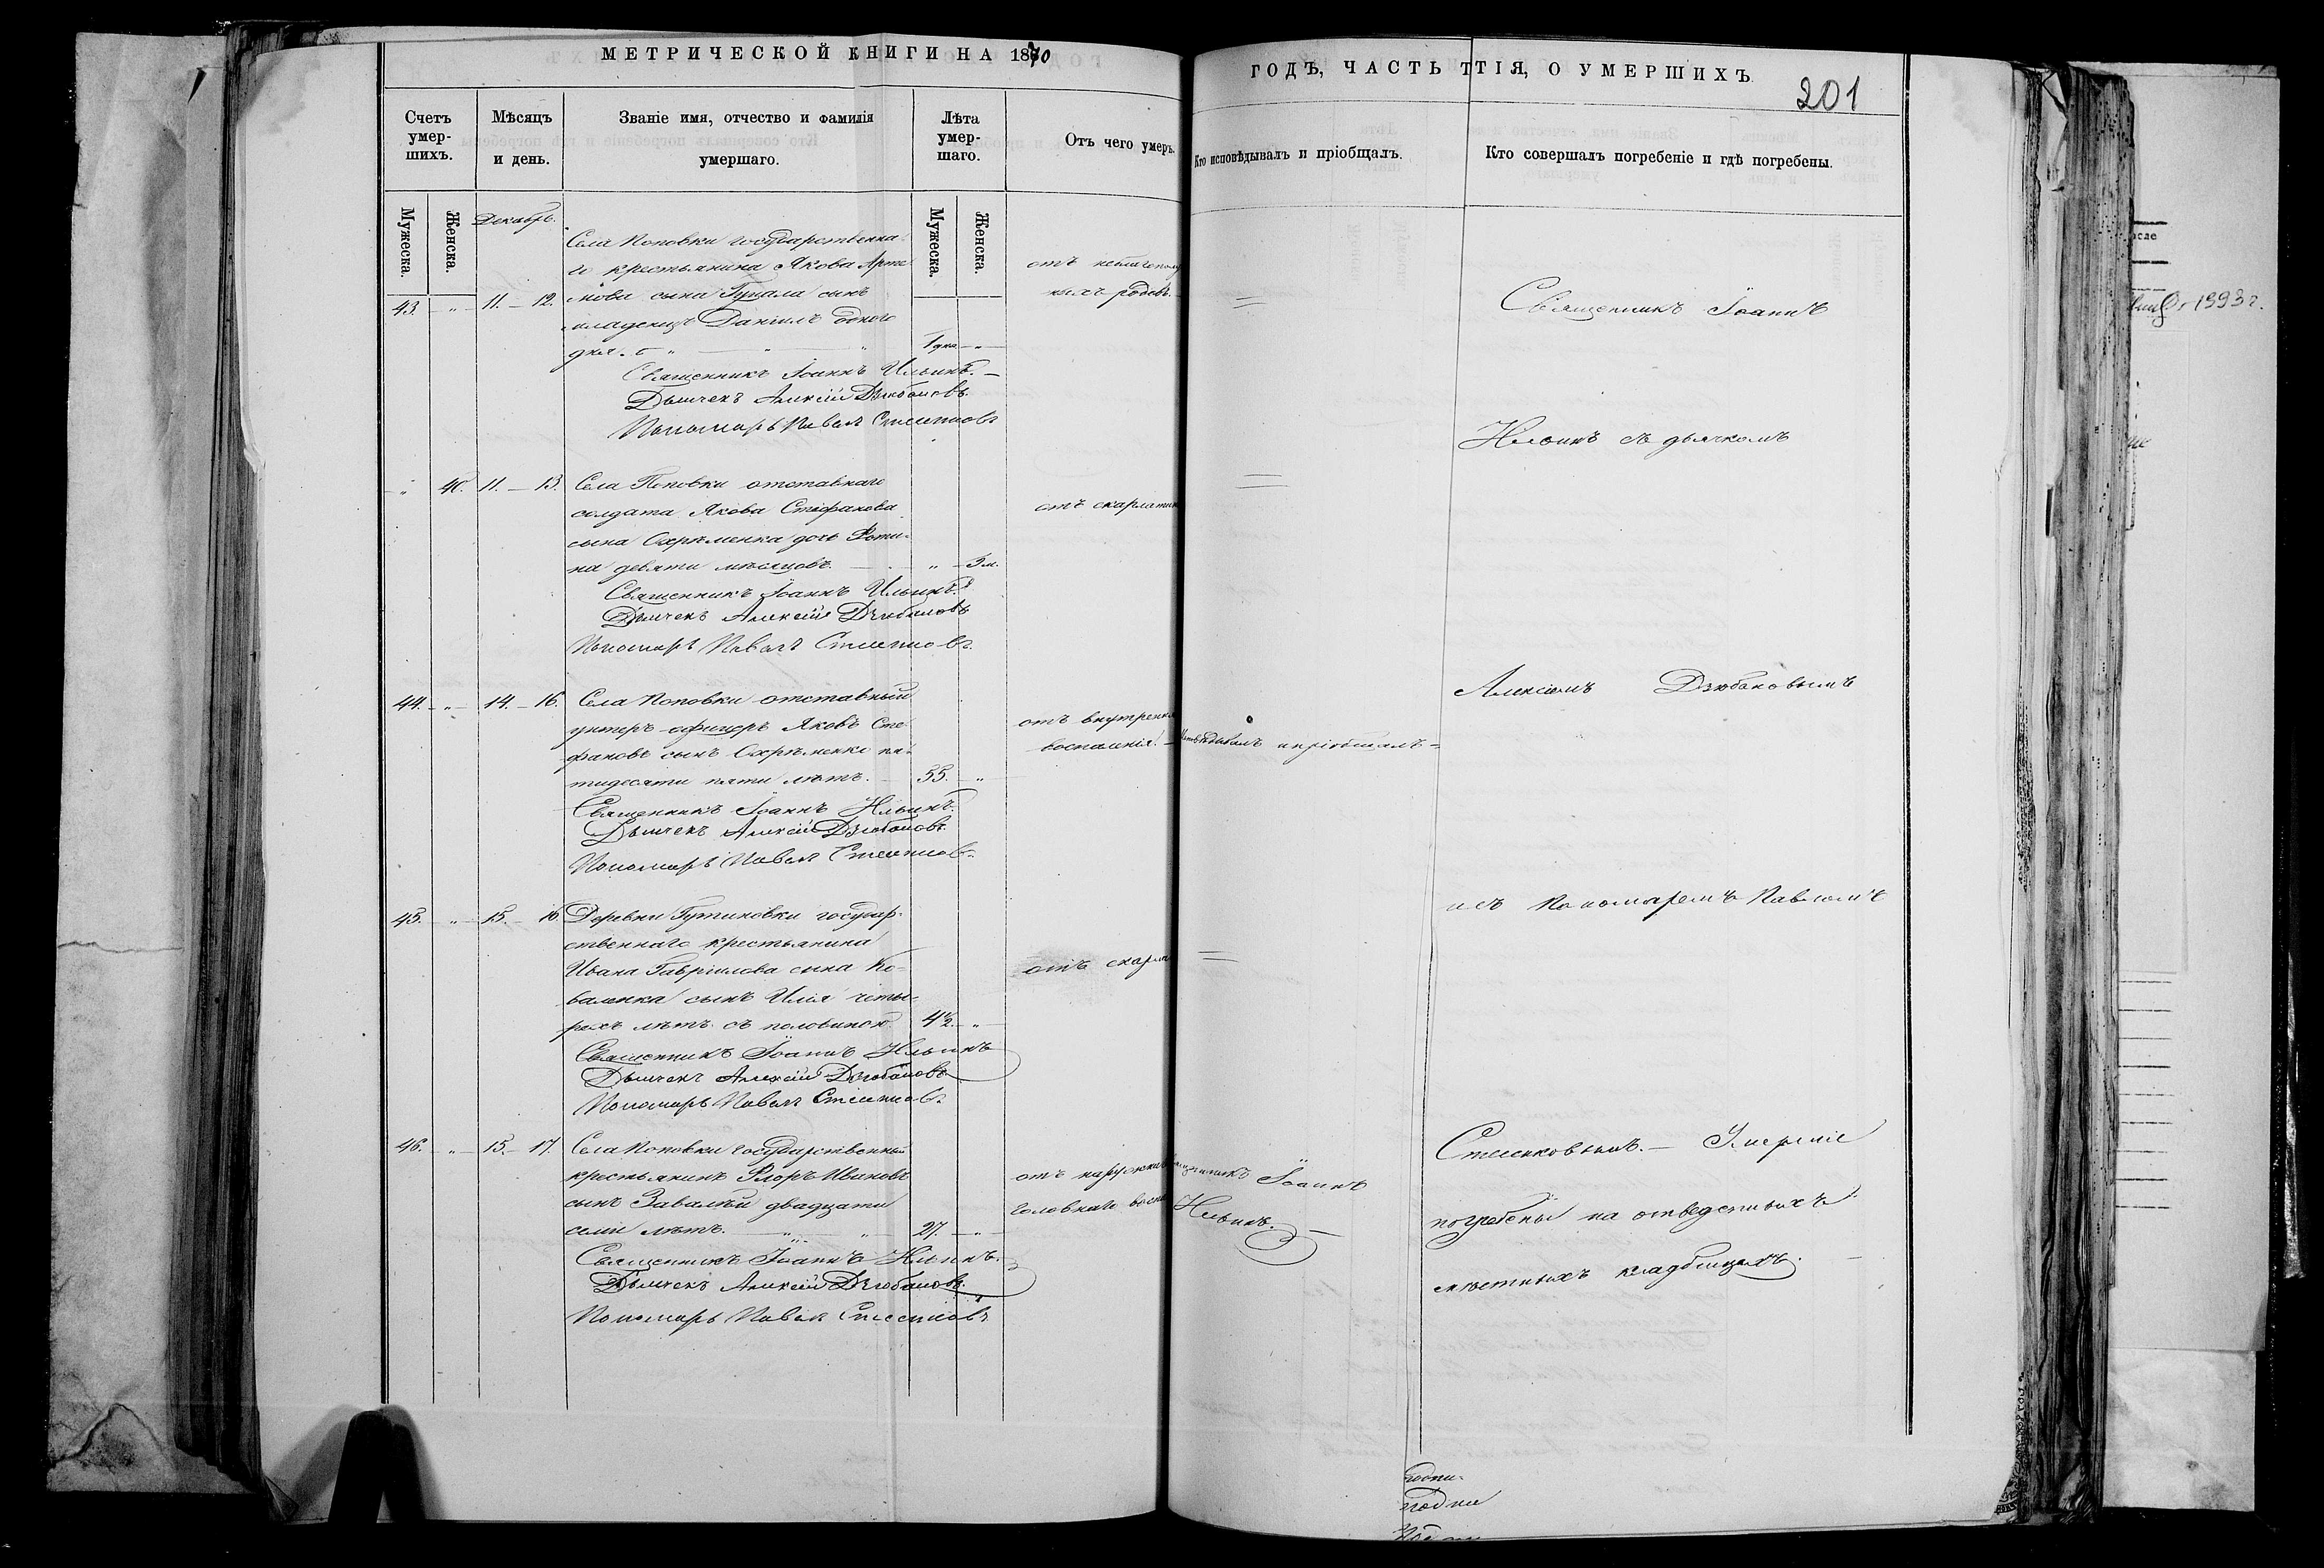 МЕТРИЧЕСКОЙ КНИГИ НА 1870
ГОДЪ, ЧАСТЬ ТТІЯ, О УМЕРШИХЪ.
201
Счетъ умер-шихъ.
Мѣсяцъ и день.
Званіе имя, отчество и фамилія умершаго.
Лѣта умер-шаго.
Отъ чего умеръ.
Кто исповѣдывалъ и пріобщалъ.
Кто совершалъ погребеніе и гдѣ погребены.
Мужеска.
Женска.
Декабрь.
Мужеска.
Женска.
Села Поповки государственна-
го крестьянина Якова Арте-
43. " 11. — 12. мова сына сынъ
младенецъ Даніилъ одного
дня. 1 дня "
отъ
ныхъ родовъ.
Священникъ Іоаннъ Ильинъ.
Дьячекъ Алексій Дзюбановъ
Пономарь Павелъ
" 40. 11. — 13. Села Поповки отставнаго
солдата Якова Стефанова
сына Охрѣменка дочь Фоти-
на девяти мѣсяцовъ. "
отъ скарлатин
Священникъ Іоаннъ Ильинъ.
Дьячекъ Алексій Дзюбановъ
Пономарь Павелъ
44. " 14. — 16. Села Поповки отставный
унтеръ-офицеръ Яковъ Сте-
фановъ сынъ Охрѣменко пя-
тидесяти пяти лѣтъ. 55. "
отъ внутренн
воспаленія.
Исповѣдывалъ и пріобщалъ
Священникъ Іоаннъ Ильинъ.
Дьячекъ Алексій Дзюбановъ
Пономарь Павелъ
45. " 15. — 16. Деревни Гутниковки государ-
ственнаго крестьянина
Ивана Гавріилова сына Ко-
валенка сынъ Илія четы-
рехъ лѣтъ съ половиною 4½ "
отъ скарла
Священникъ Іоаннъ Ильинъ
Дьячекъ Алексій Дзюбановъ
Пономарь Павелъ
46. " 15. — 17. Села Поповки государственный
крестьянинъ Флоръ Ивановъ
сынъ двадцати
семи лѣтъ. 27. "
отъ наружнаго
головнаго воспа
Священникъ Іоаннъ
Ильинъ.
Священникъ Іоаннъ Ильинъ.
Дьячекъ Алексій Дзюбановъ.
Пономарь Павелъ
Священникъ Іоаннъ
Ильинъ съ дьячкомъ
Алексіемъ Дзюбановымъ
и съ Пономаремъ Павломъ
Умершіе
погребены на отведенныхъ
мѣстныхъ кладбищахъ.
1993 г.